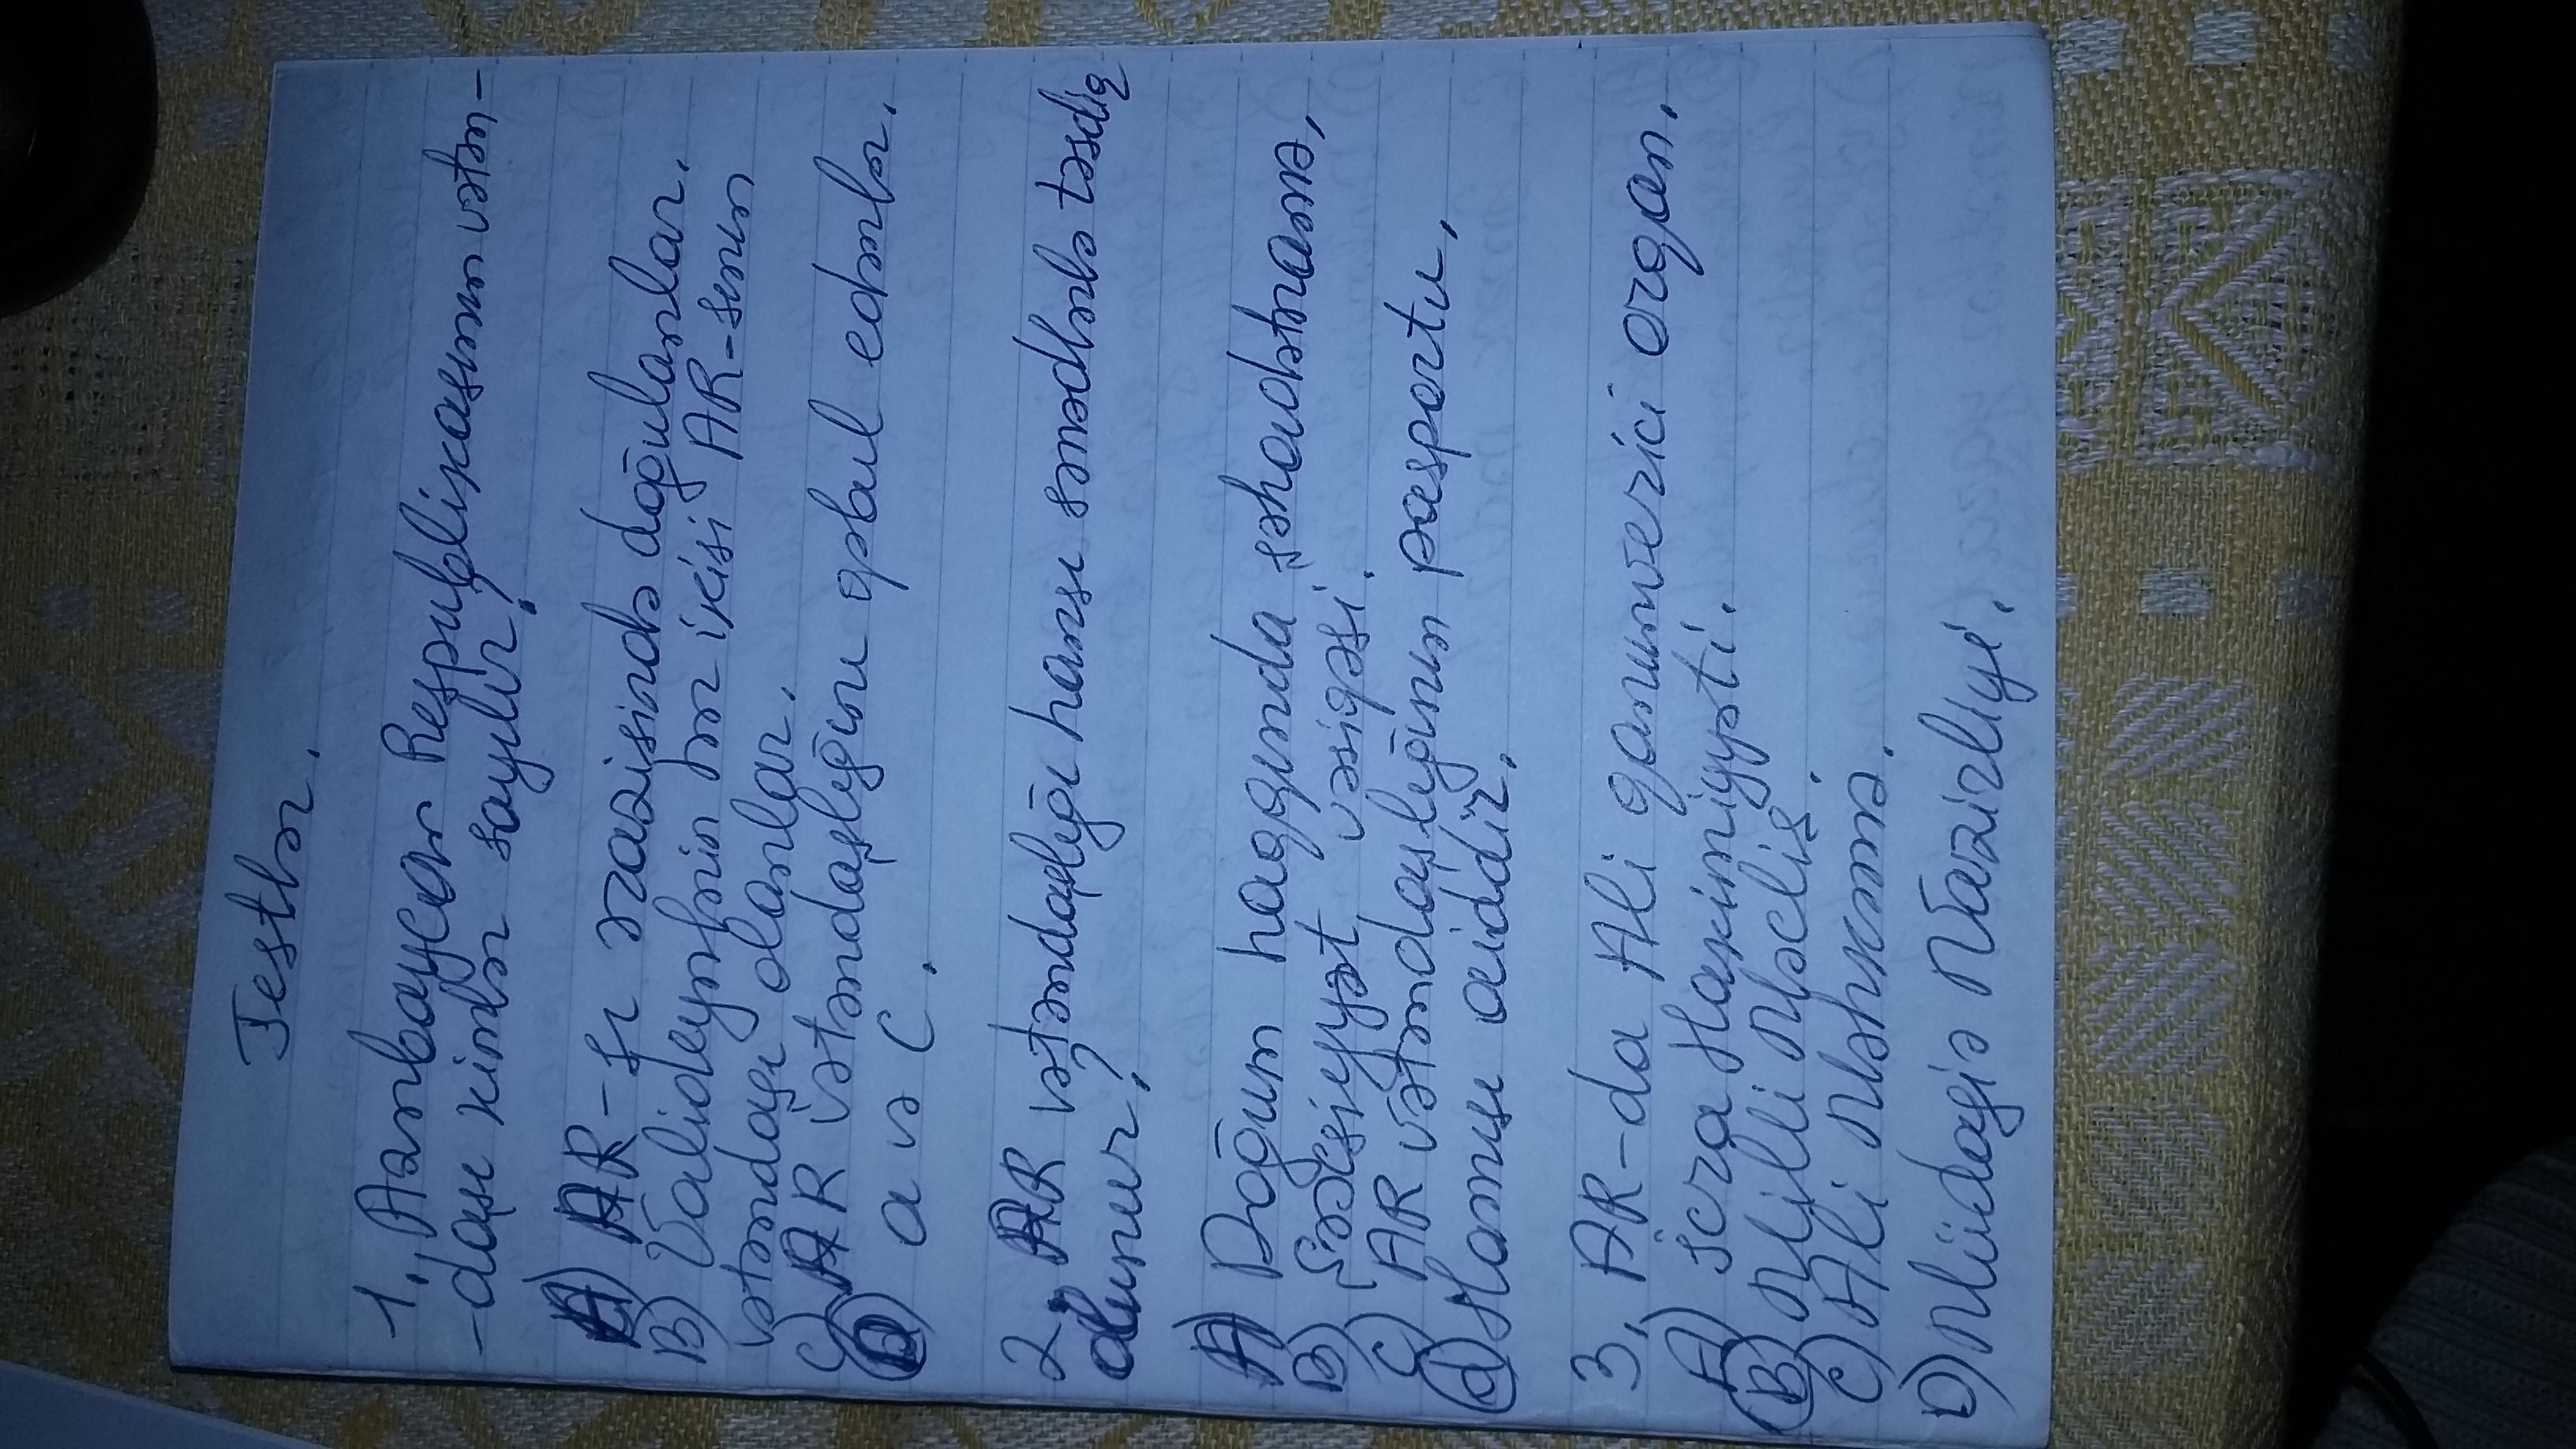 Testlər.
1. Azərbaycan Respublikasının vətən-
-daşı kimlər sayılır?
A) AR-sı ərazisində doğulanlar.
B) Valideynlərinin hər ikisi AR-sının
vətəndaşı olanlar.
C) AR vətəndaşlığını qəbul edənlər.
D) a və C.
2. AR vətəndaşlığı hansı sənədlərlə təsdiq
olunur?
A) Doğum haqqında şəhadətnamə,
B) Şəxsiyyət vəsiqəsi.
C) AR vətəndaşlığının pasportu,
d) Hamısı aiddir.
3. AR-da Ali qanunverici orqan.
A) İcra Hakimiyyəti.
B) Milli Məclis.
C) Ali Məhkəmə.
D) Müdafiə Nazirliyi.